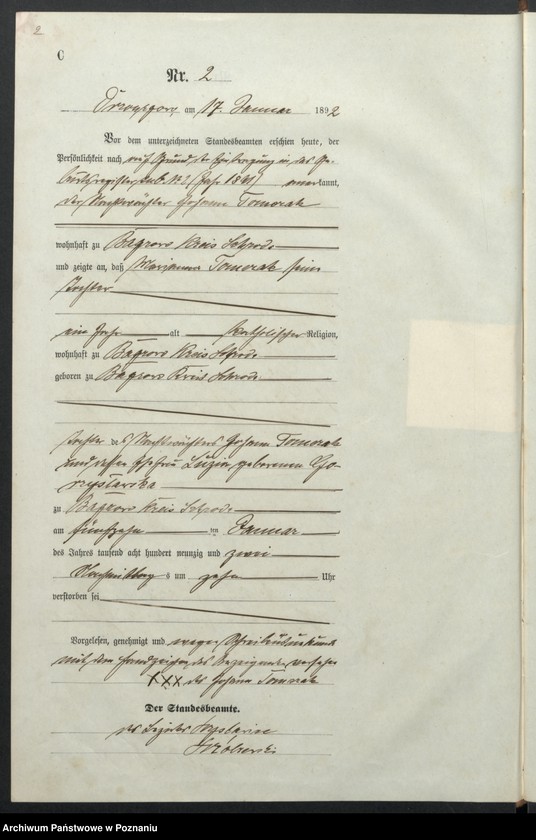 2
C
Nr. 2
am 17. Januar 1892
Vor dem unterzeichneten Standesbeamten erschien heute, der
Persönlichkeit nach auf Grund der Eintragung in das Ge-
burtsregister sub. N. 2 (Jahr 1891) anerkannt,
der Nachtwächter Johann Tomczak
wohnhaft zu Bagrowo Kreis Schroda
und zeigte an, daß Marjanna Tomczak seine
Tochter
ein Jahr alt katholischer Religion,
wohnhaft zu Bagrowo Kreis Schroda
geboren zu Bagrowo Kreis Schroda
Tochter des Nachtwächters Johann Tomczak
und dessen Ehefrau Luzia geborenen
zu Bagrowo Kreis Schroda
am fünfzehn ten Januar
des Jahres tausend acht hundert neunzig und zwei
Nachmittags um zehn Uhr
verstorben sei
Vorgelesen, genehmigt und wegen Schreibunkunde
mit dem Handzeichen des Anzeigenden versehen
XXX des Johann Tomczak
Der Standesbeamte.
Archiwum Państwowe w Poznaniu